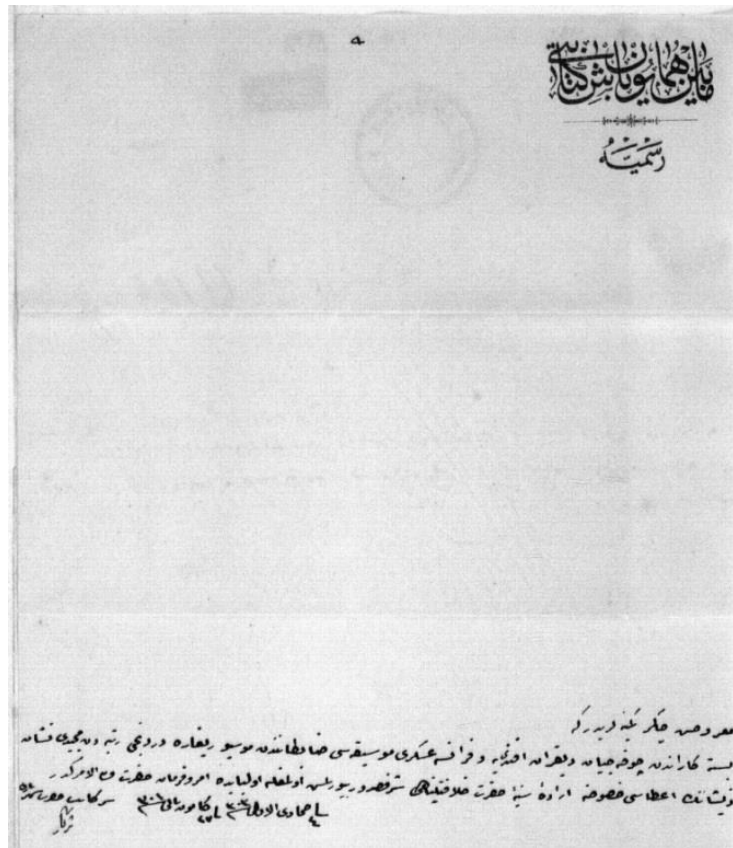 ٩
مابين همايون باش كتابتى
رسميه
معروض چاكر كمينه لريدر كه
بسته كاراندن چوخه جيان ديقران افندى يه و فرانسه عسكرى موسيقه سى ضابطانندن موسيو دردنجى رتبه دن مجيدى نشان
ذيشاننك اعطاسى خصوصنه اراده سنيه حضرت خلافتپناهى شرفصدور بيورلمش اولمغله اولبابده امر و فرمان حضرت ولى الامركدر
فى جمادى الاول سنه فى كانون ثانى سنه سركاتب حضرت شهريارى
ثريا